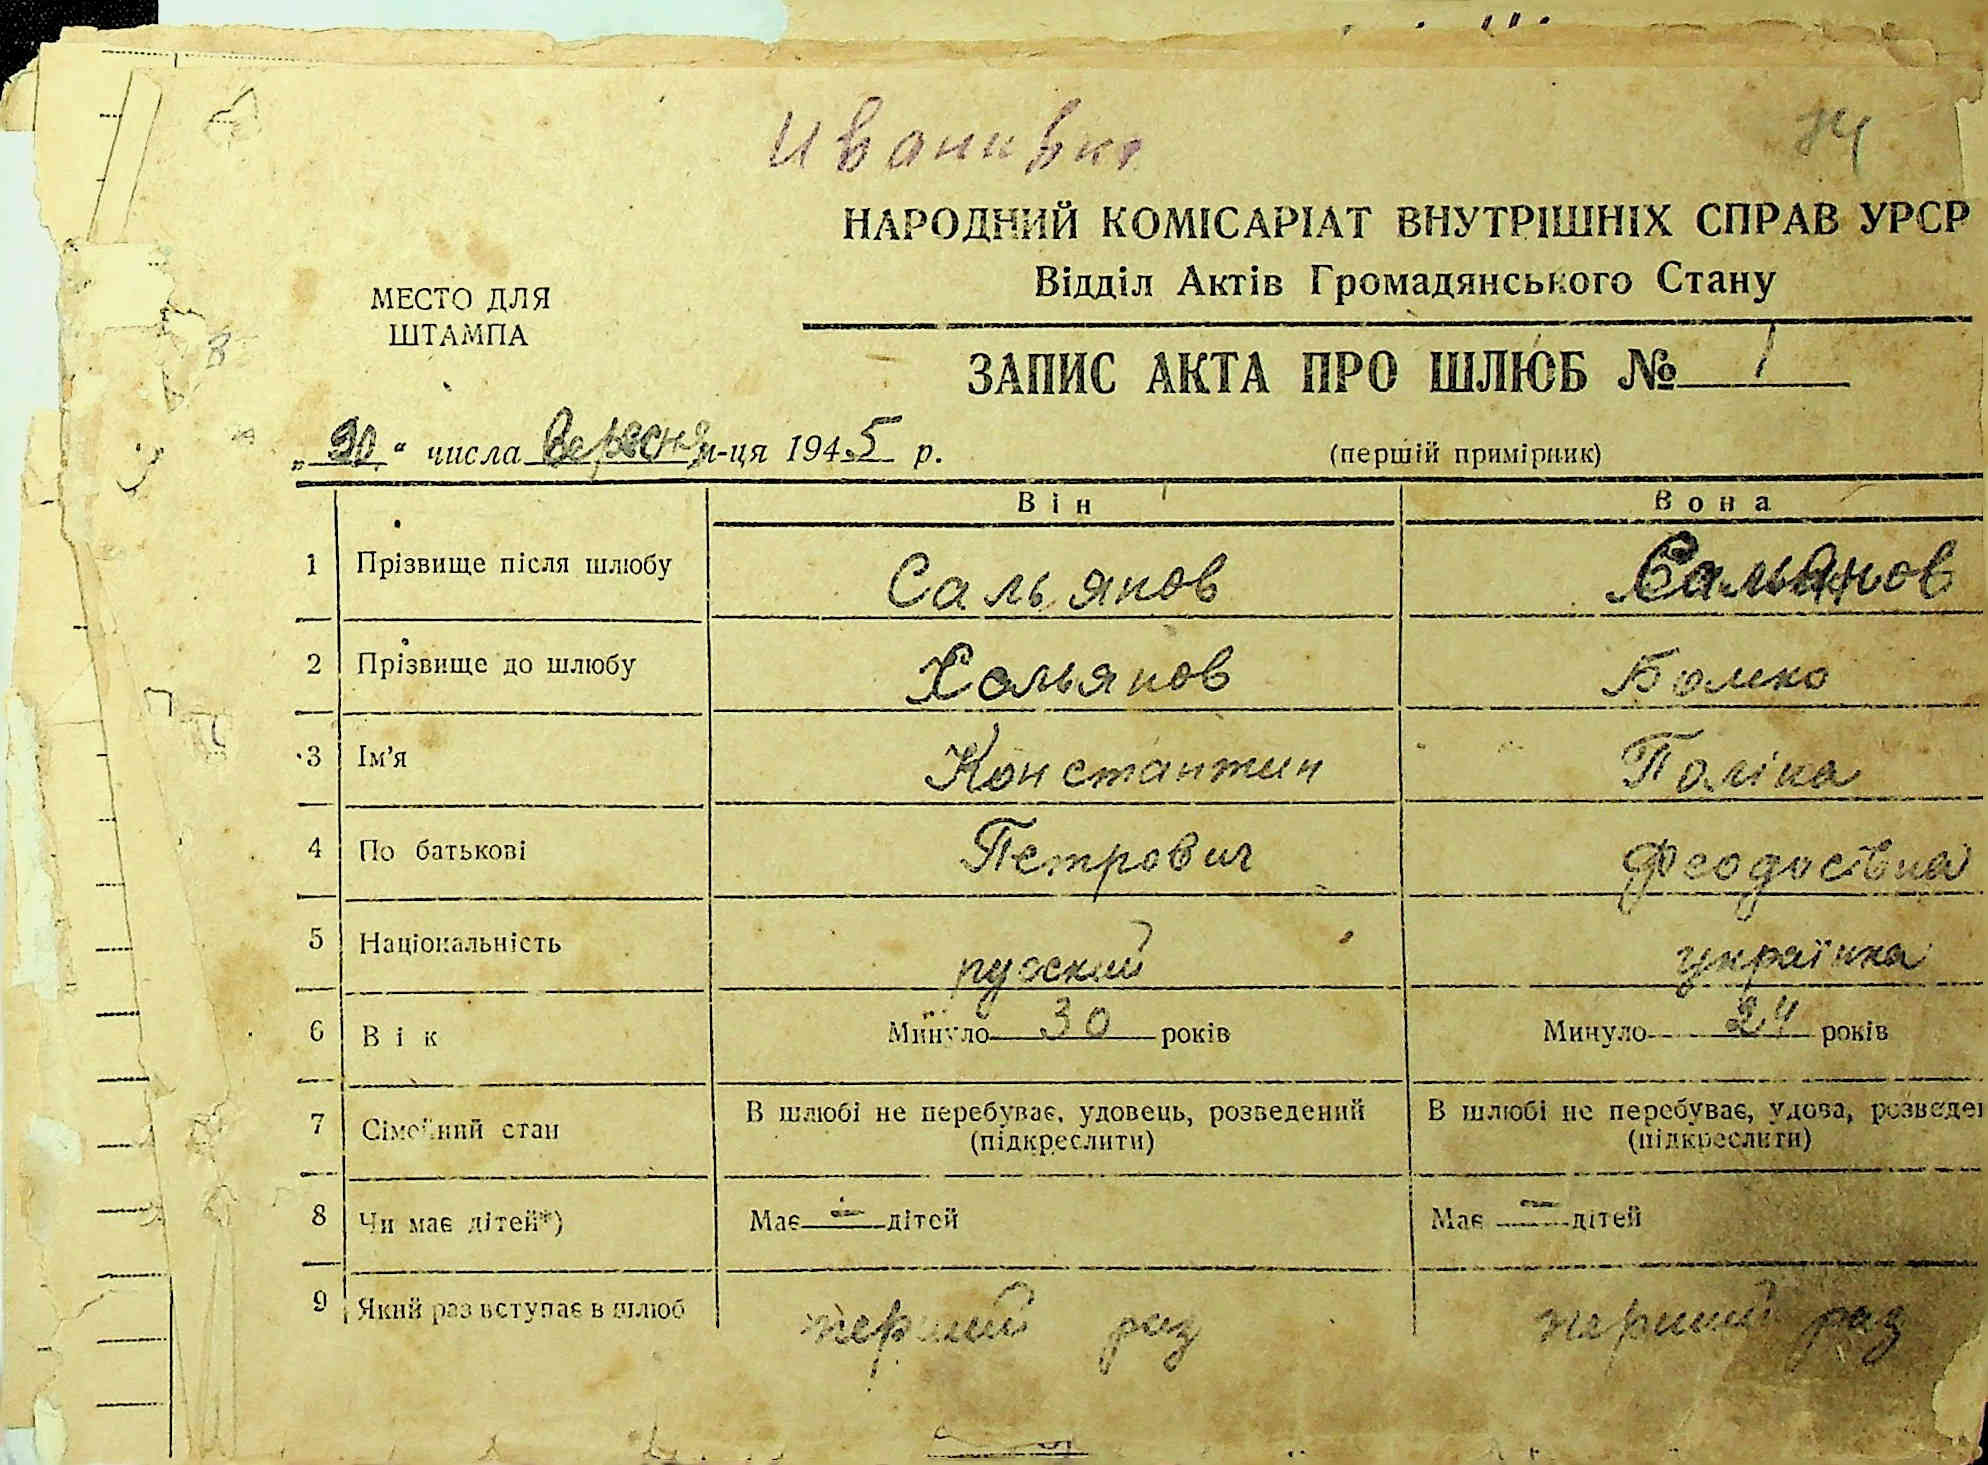 Иванивка
14
НАРОДНИЙ КОМІСАРІАТ ВНУТРІШНІХ СПРАВ УРСР
Відділ Актів Громадянського Стану
МЕСТО ДЛЯ
ШТАМПА
ЗАПИС АКТА ПРО ШЛЮБ № 1
" " числа вересня м-ця 1945 р.
(першій примірник)
Він Вона
1 Прізвище після шлюбу Сальянов Сальянов
2 Прізвище до шлюбу Хальянов
3 Ім'я Константин Поліна
4 По батькові Петрович Феодосівна
5 Національність русский українка
6 Вік Минуло 30 років Минуло 24 років
7 Сімейний стан В шлюбі не перебуває, удовець, розведений (підкреслити) В шлюбі не перебуває, удова, розведен (підкреслити)
8 Чи має дітей*) Має — дітей Має — дітей
9 Який раз вступає в шлюб перший раз перший раз